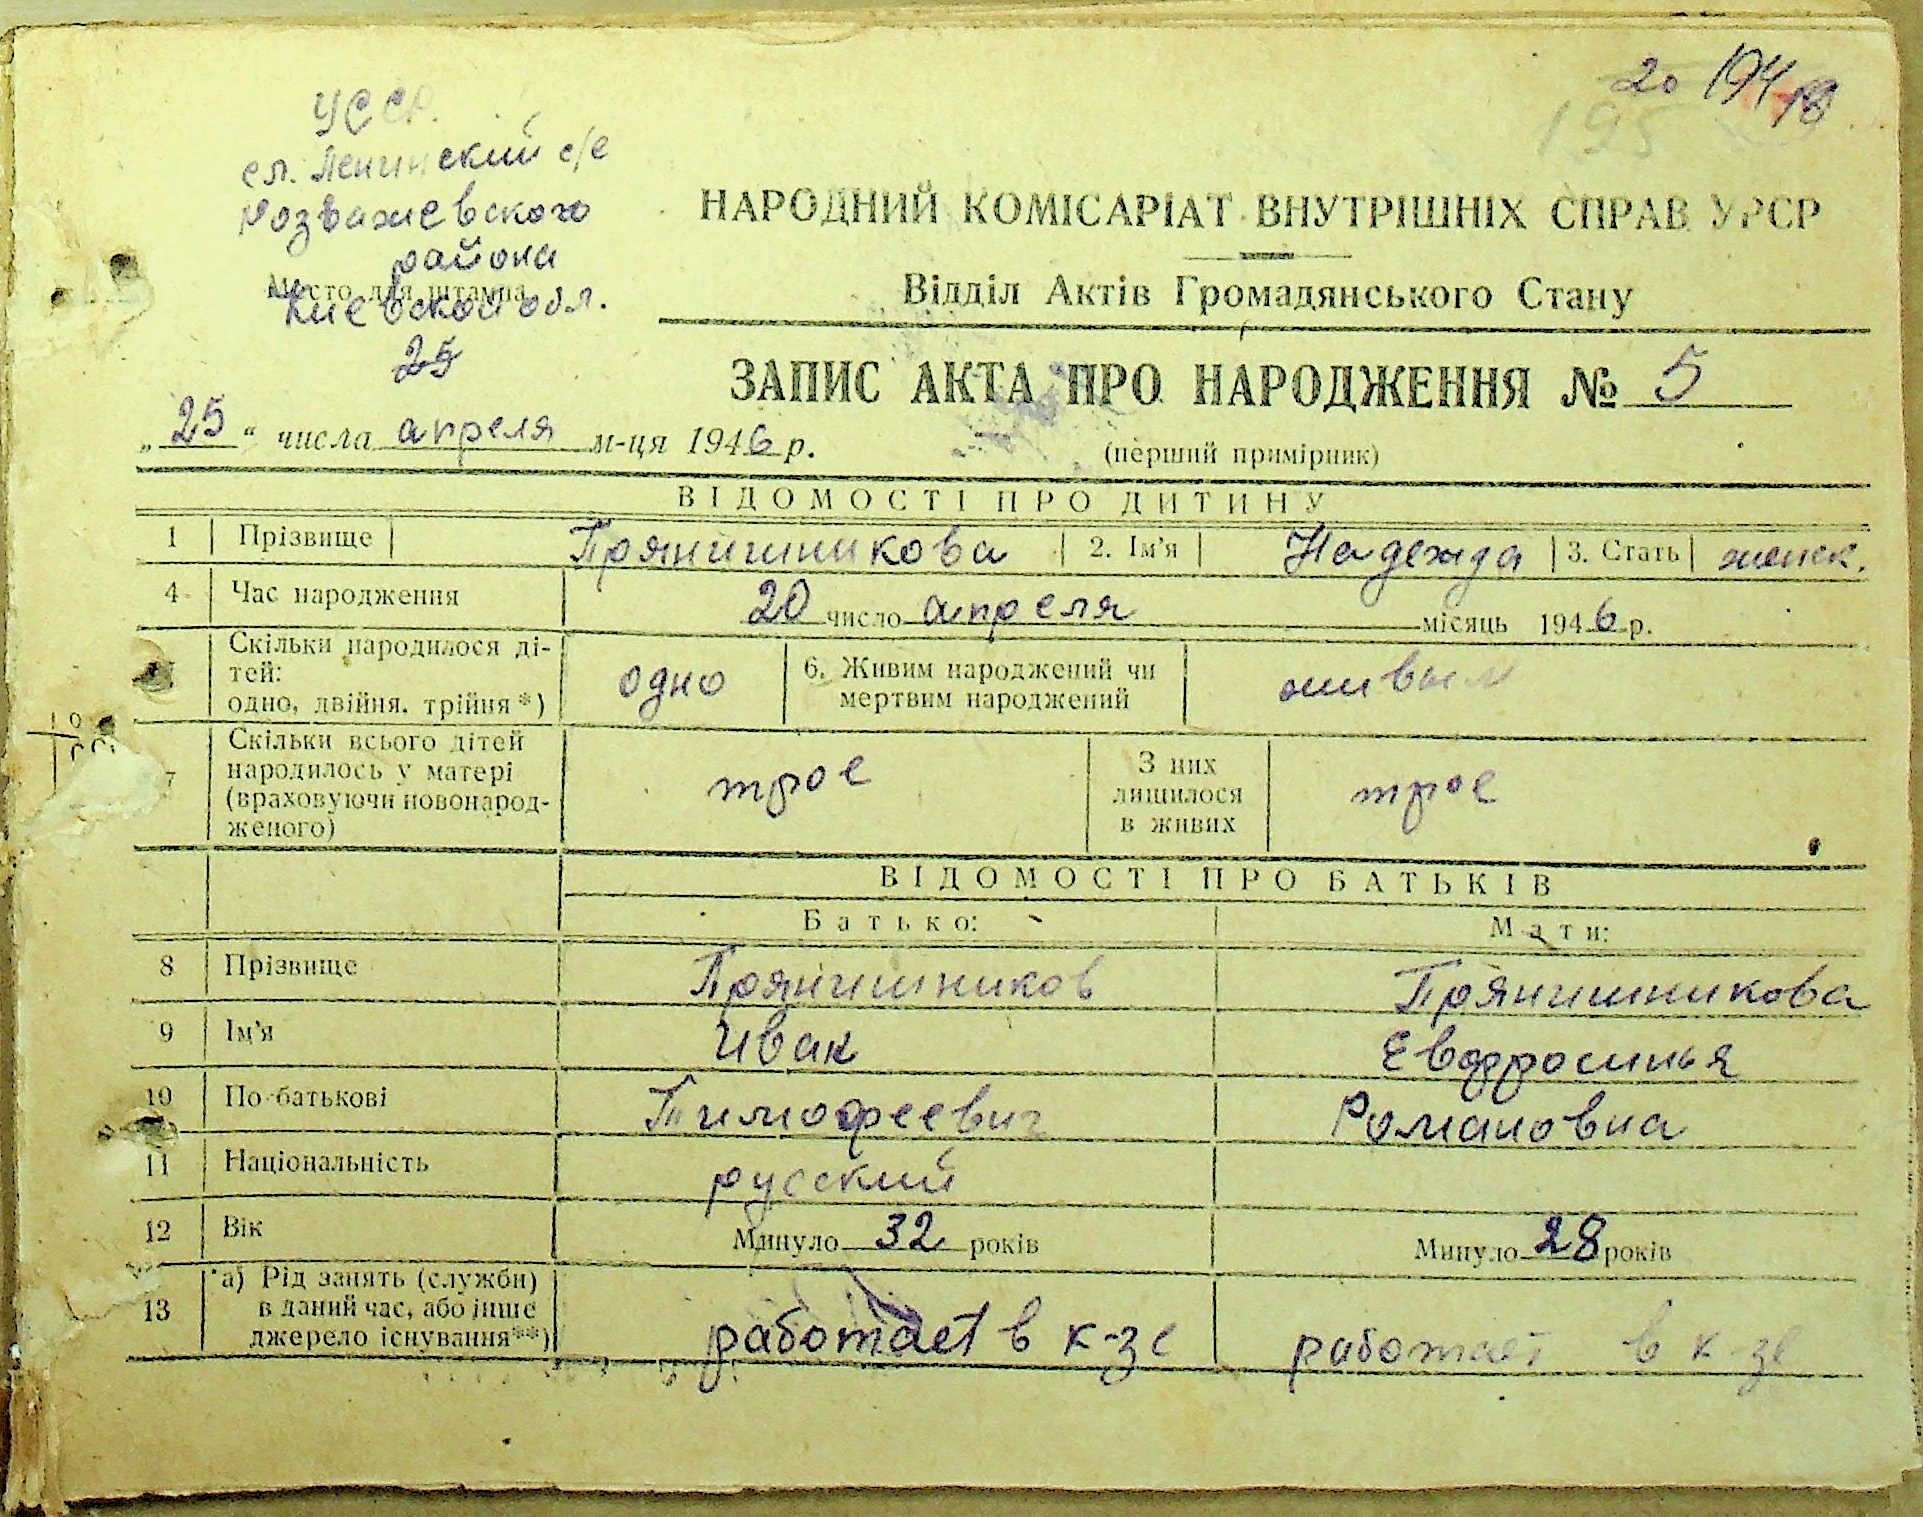 20 194 18
195
УССР.
ел. Ленинский с/с
Розважевского
района
Место для штампа
Киевской обл.
25
НАРОДНИЙ КОМІСАРІАТ ВНУТРІШНІХ СПРАВ УРСР
Відділ Актів Громадянського Стану
ЗАПИС АКТА ПРО НАРОДЖЕННЯ № 5
„25“ числа апреля м-ця 1946 р.
(перший примірник)
ВІДОМОСТІ ПРО ДИТИНУ
1 Прізвище Прянишникова 2. Ім'я Надежда 3. Стать женск.
4 Час народження 20 число апреля місяць 1946 р.
Скільки народилося ді-
тей:
одно, двійня, трійня*) одно 6. Живим народжений чи
мертвим народжений живым
7 Скільки всього дітей
народилось у матері
(враховуючи новонарод-
женого) трое З них
лишилося
в живих трое
ВІДОМОСТІ ПРО БАТЬКІВ
Батько: Мати:
8 Прізвище Прянишников Прянишникова
9 Ім'я Иван Евфросинья
10 По-батькові Тимофеевич Романовна
11 Національність русский
12 Вік Минуло 32 років Минуло 28 років
13 а) Рід занять (служби)
в даний час, або інше
джерело існування**) работает в к-зе работает в к-зе